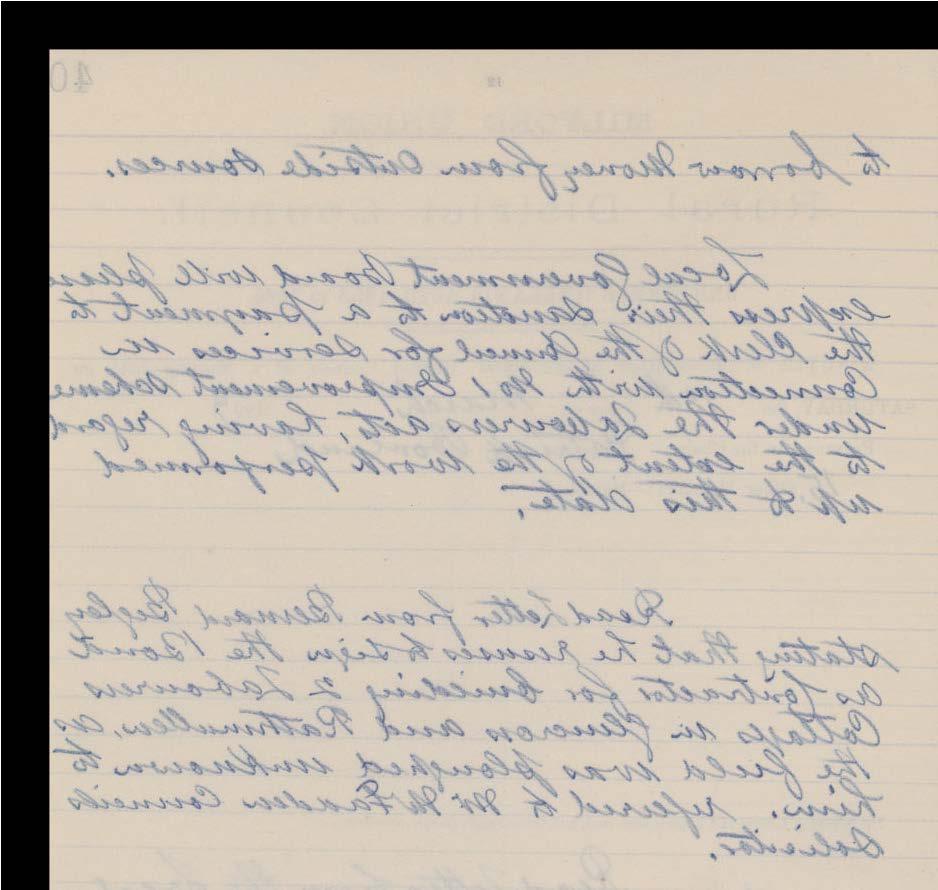 40
to borrow Money from Outside Sources.
Local Government Board will please
express their sanction to a payment to
the Clerk of the Council for services in
Connection with No 1 Improvement Scheme
under the Labourers acts, having regard
to the extent of the work performed
up to this date.
Read letter from Bernard Begley
stating that he refuses to sign the Bond
as Contractor for building 2 Labourers
Cottages in Glencross and Rathmullen, as
the field was ploughed unknown to
him. referred to Mr McFadden Councils
Solicitor.